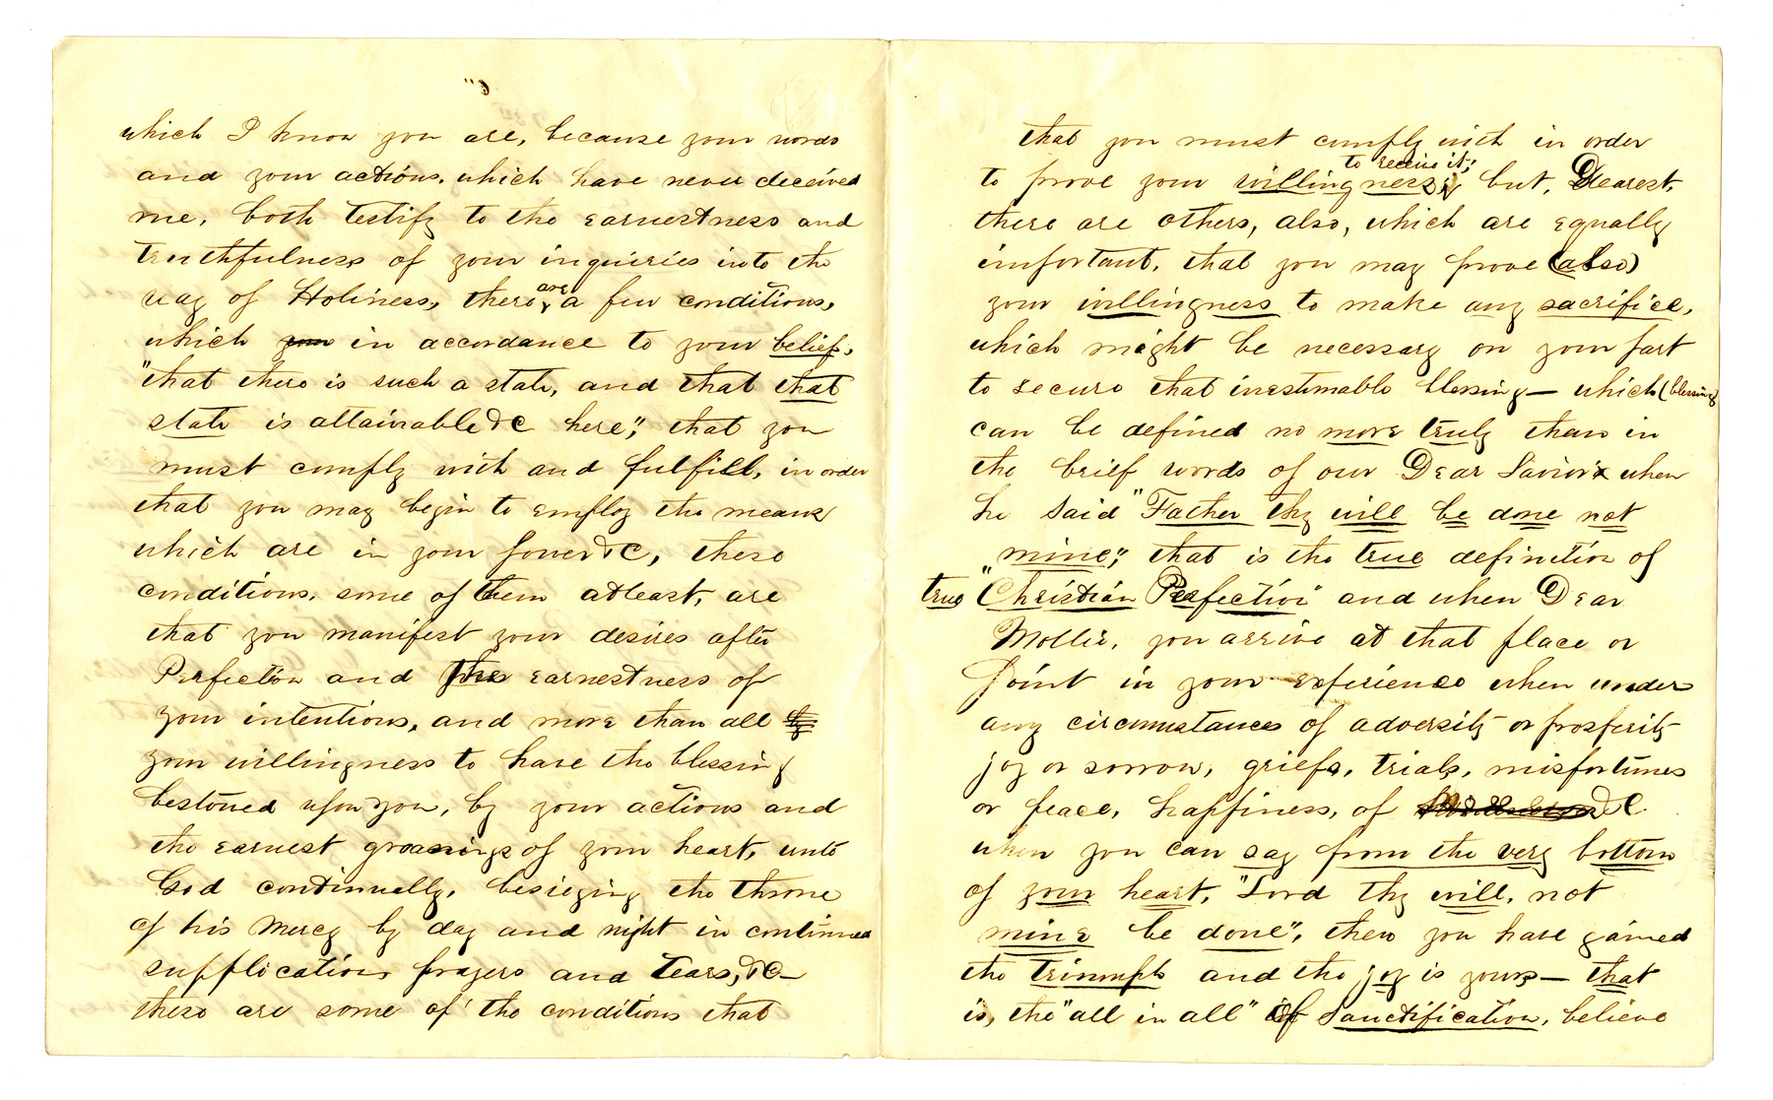 which I know you are, because your words
and your actions, which have never deceived
me, both testify to the earnestness and
truthfulness of your inquiries into the
way of Holiness, there are a few conditions,
which you in accordance to your belief,
"that there is such a state, and that that
state is attainable &C here", that you
must comply with and fulfill, in order
that you may begin to employ the means
which are in your power &C, these
conditions, some of them at least, are
that you manifest your desires after
Perfection and the earnestness of
your intentions, and more than all
your willingness to have the blessing
bestowed upon you, by your actions and
the earnest groanings of your heart, unto
God continually, besieging the throne
of his Mercy by day and night in continued
supplications prayers and tears, &C—
these are some of the conditions that
that you must comply with in order
to prove your willingness to receive it; but, Dearest,
there are others, also, which are equally
important, that you may prove (also)
your willingness to make any sacrifice,
which might be necessary on your part
to secure that inestimable blessing— which (blessing)
can be defined no more truly than in
the brief words of our Dear Savior when
he said "Father thy will be done not
mine", that is the true definition of
true "Christian Perfection" and when Dear
Mollie, you arrive at that place or
point in your experience when under
any circumstances of adversity or prosperity
joy or sorrow, griefs, trials, misfortunes
or peace, happiness, of &C.
when you can say from the very bottom
of your heart, "Lord thy will, not
mine be done", then you have gained
the triumph and the joy is yours— that
is, the "all in all" of Sanctification, believe